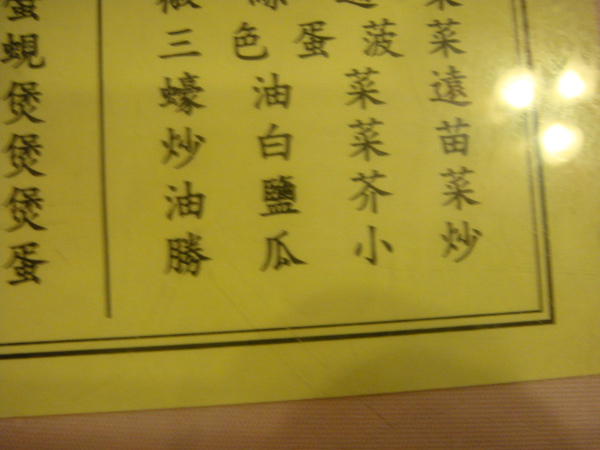 蜆 三色蛋菠菜
煲 蠔油菜遠
煲 炒白菜苗
煲 油鹽芥菜
蛋 勝瓜小炒